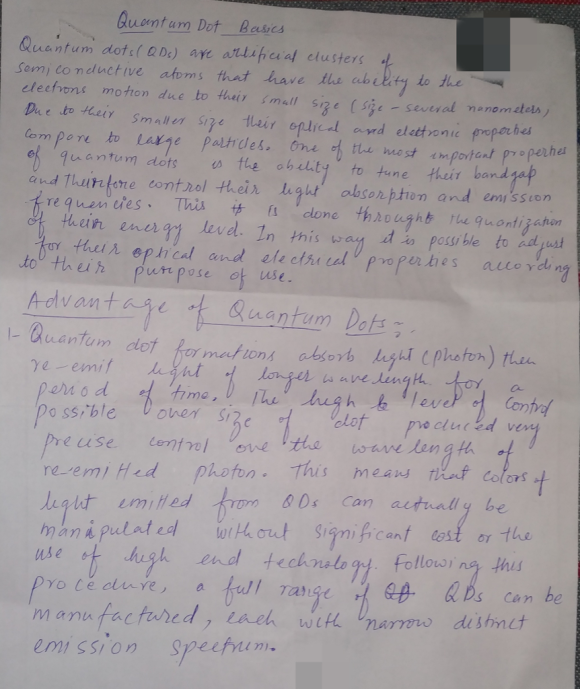 Quantum Dot Basics
Quantum dots (QDs) are artificial clusters of
Semiconductive atoms that have the ability to the
electrons motion due to their small size (size - several nanometers)
Due to their smaller size their optical and electronic properties
compare to large particles. One of the most important properties
of quantum dots is the ability to tune their bandgap
and Therefore control their light absorption and emission
frequencies. This is done through the quantization
of their energy level. In this way it is possible to adjust
for their optical and electrical properties according
to their purpose of use.
Advantage of Quantum Dots:-
1- Quantum dot formations absorb light (photon) then
re-emit light of longer wavelength for a
period of time. The high level of control
possible over size of dot produced very
precise control over the wavelength of
re-emitted photon. This means that colors of
light emitted from QDs can actually be
manipulated without significant cost or the
use of high end technology. Following this
procedure, a full range of QDs can be
manufactured, each with narrow distinct
emission spectrum.